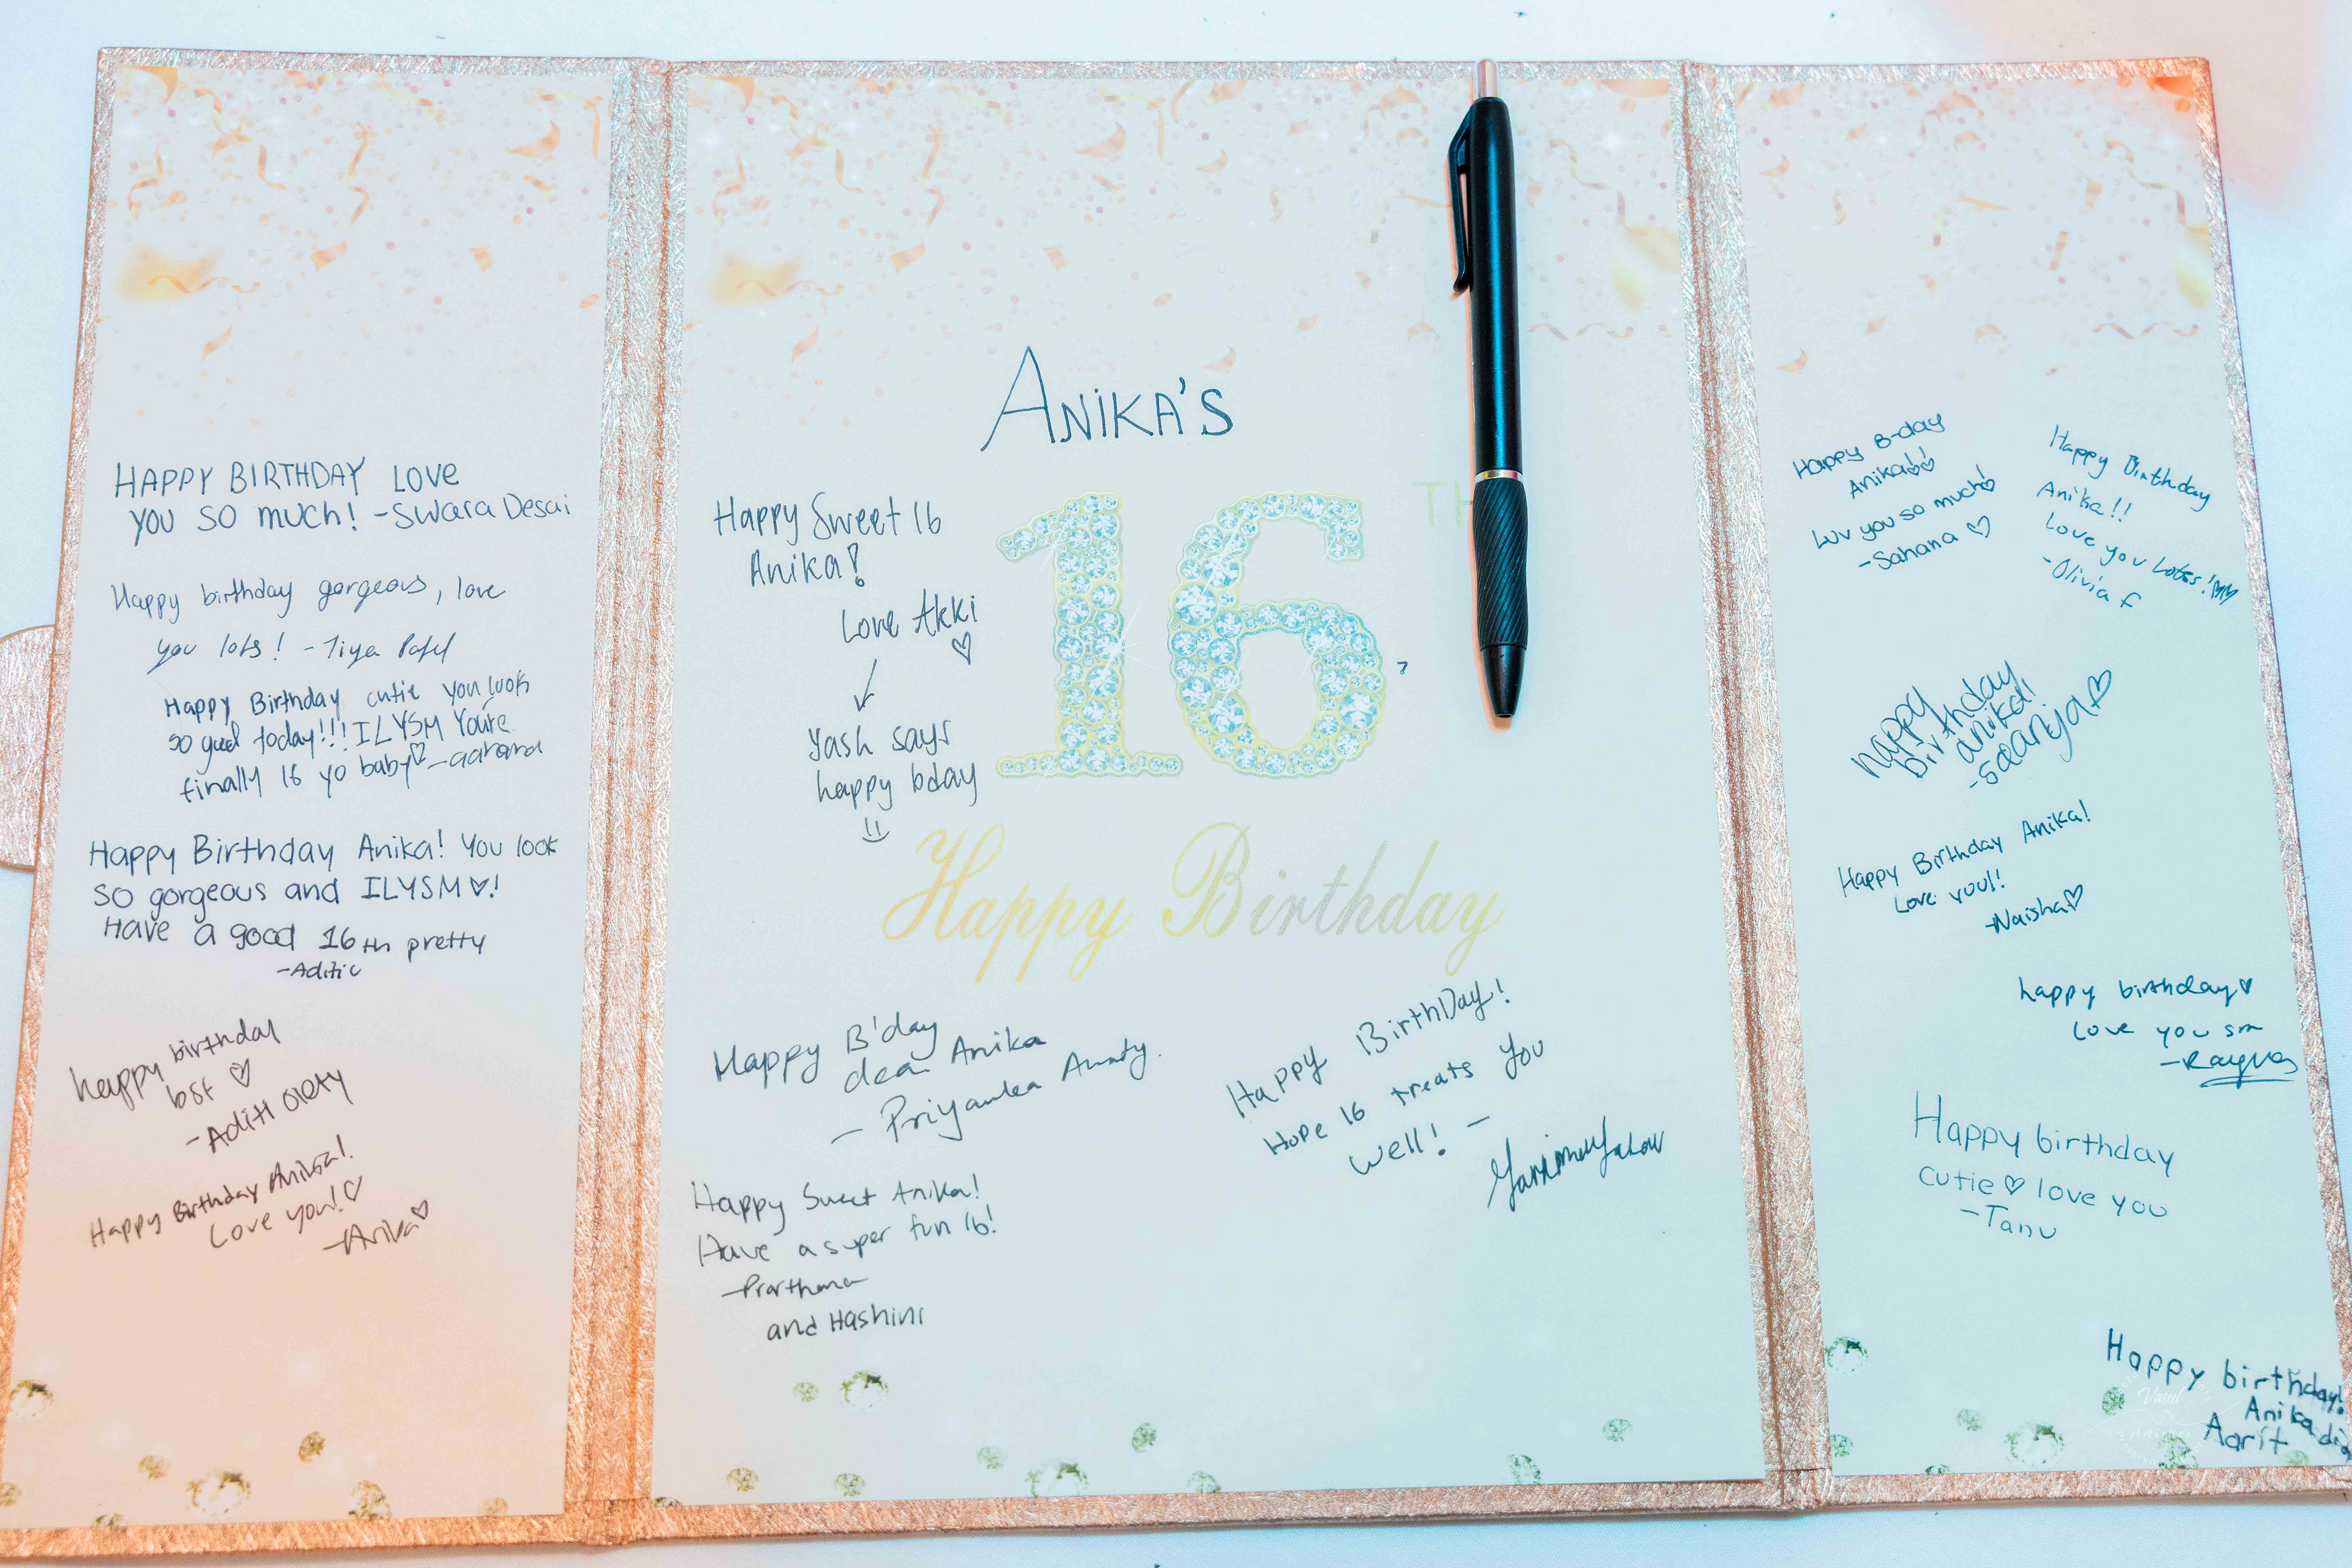 HAPPY BIRTHDAY LOVE
YOU SO MUCH! -Swara Desai
Happy birthday gorgeous, love
you lots! - Tiya Patel
Happy Birthday cutie you look
so good today!!! ILYSM You're
finally 16 yo baby♡ -aarana
Happy Birthday Anika! You look
so gorgeous and ILYSM♡!
Have a good 16th pretty
-Aditi
happy birthday
bsf ♡
-Aditi
Happy Birthday Anika!
Love you!♡
-Arika♡
ANiKA'S
16 TH
Happy Sweet 16
Anika!
Love Akki
♡
Yash says
happy bday
Happy Birthday
Happy B'day
dear Anika
- Priyanka Aunty.
Happy BirthDay!
Hope 16 treats you
well! -
Happy Sweet Anika!
Have a super fun 16!
-Prarthana
and Hashini
Happy B-day
Anika!!
Luv you so much!
-Sahana ♡
Happy Birthday
Anika!!
Love you Lotss!
-Olivia F
happy
birthday
anika!
-saanya♡
Happy Birthday Anika!
Love you!!
-Naisha♡
happy birthday♡
Love you sm
-Rayna
Happy birthday
cutie ♡ love you
-Tanu
Happy birthday!
Anika di
Aarit